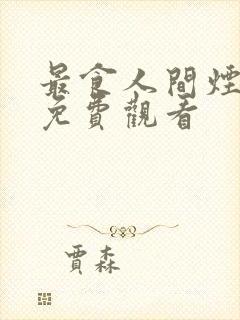 最食人間煙
免費觀看
賈森